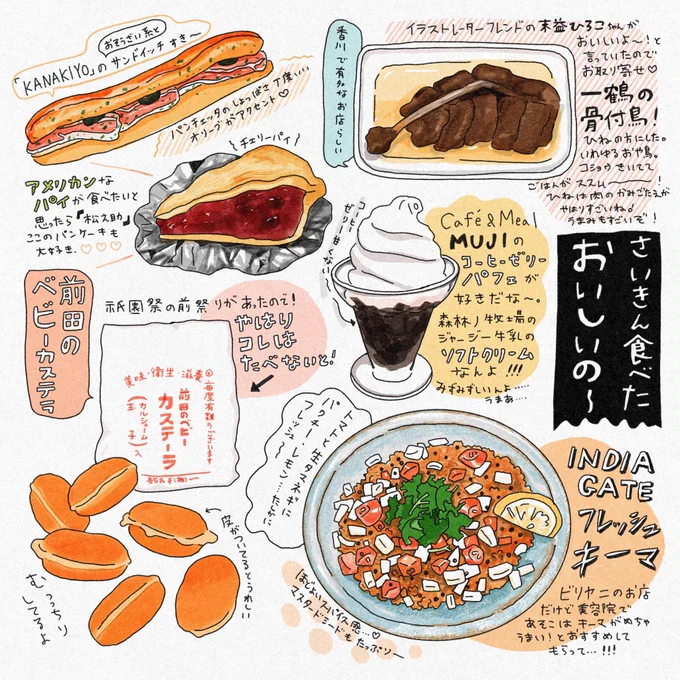 さいきん食べた
おいしいの〜
おそうざい糸と
「KANAKIYO」のサンドイッチ すき〜
パンチェッタのしょっぱさ丁度いい
オリーブがアクセント♡
香川で有名なお店らしい
イラストレーターフレンドの末益ひろこちゃんが
おいしいよ〜!と
言っていたので
お取り寄せ♡
一鶴の
骨付鳥!
ひねの方にした。
いわゆるおや鳥。
コショウきいてて
ごはんがススム〜〜〜!
ひねは肉のかみごたえが
やはりすごいね。
うまみもすごいぞ!
チェリーパイ
アメリカンな
パイが食べたいと
思ったら「松之助」
ここのパンケーキも
大好き.♡♡♡
コーヒー
ゼリー甘くない〜
Café&Meal
MUJIの
コーヒーゼリー
パフェが
好きだな〜。
森林ノ牧場の
ジャージー牛乳の
ソフトクリーム
なんよ!!!
みずみずしいんよ……
うまぁ……
前田の
ベビーカステラ
祇園祭の前祭りがあったので!
やはり
コレは
たべないと!
毎度有難うございます
美味・衛生・滋養
前田のベビー
カステーラ
(カルシューム)
(玉子)入
皮がついてるとうれしい
むっちり
してるよ
トマトと生タマネギに
パクチー!
フレッシュ〜レモン…たしかに
INDIA
GATE
フレッシュ
キーマ
ビリヤニのお店
だけど美容院で
あそこはキーマがめちゃ
うまい!とおすすめして
もらって…!!!
ほどよいスパイス感…♡
マスタードシードもたっぷり〜